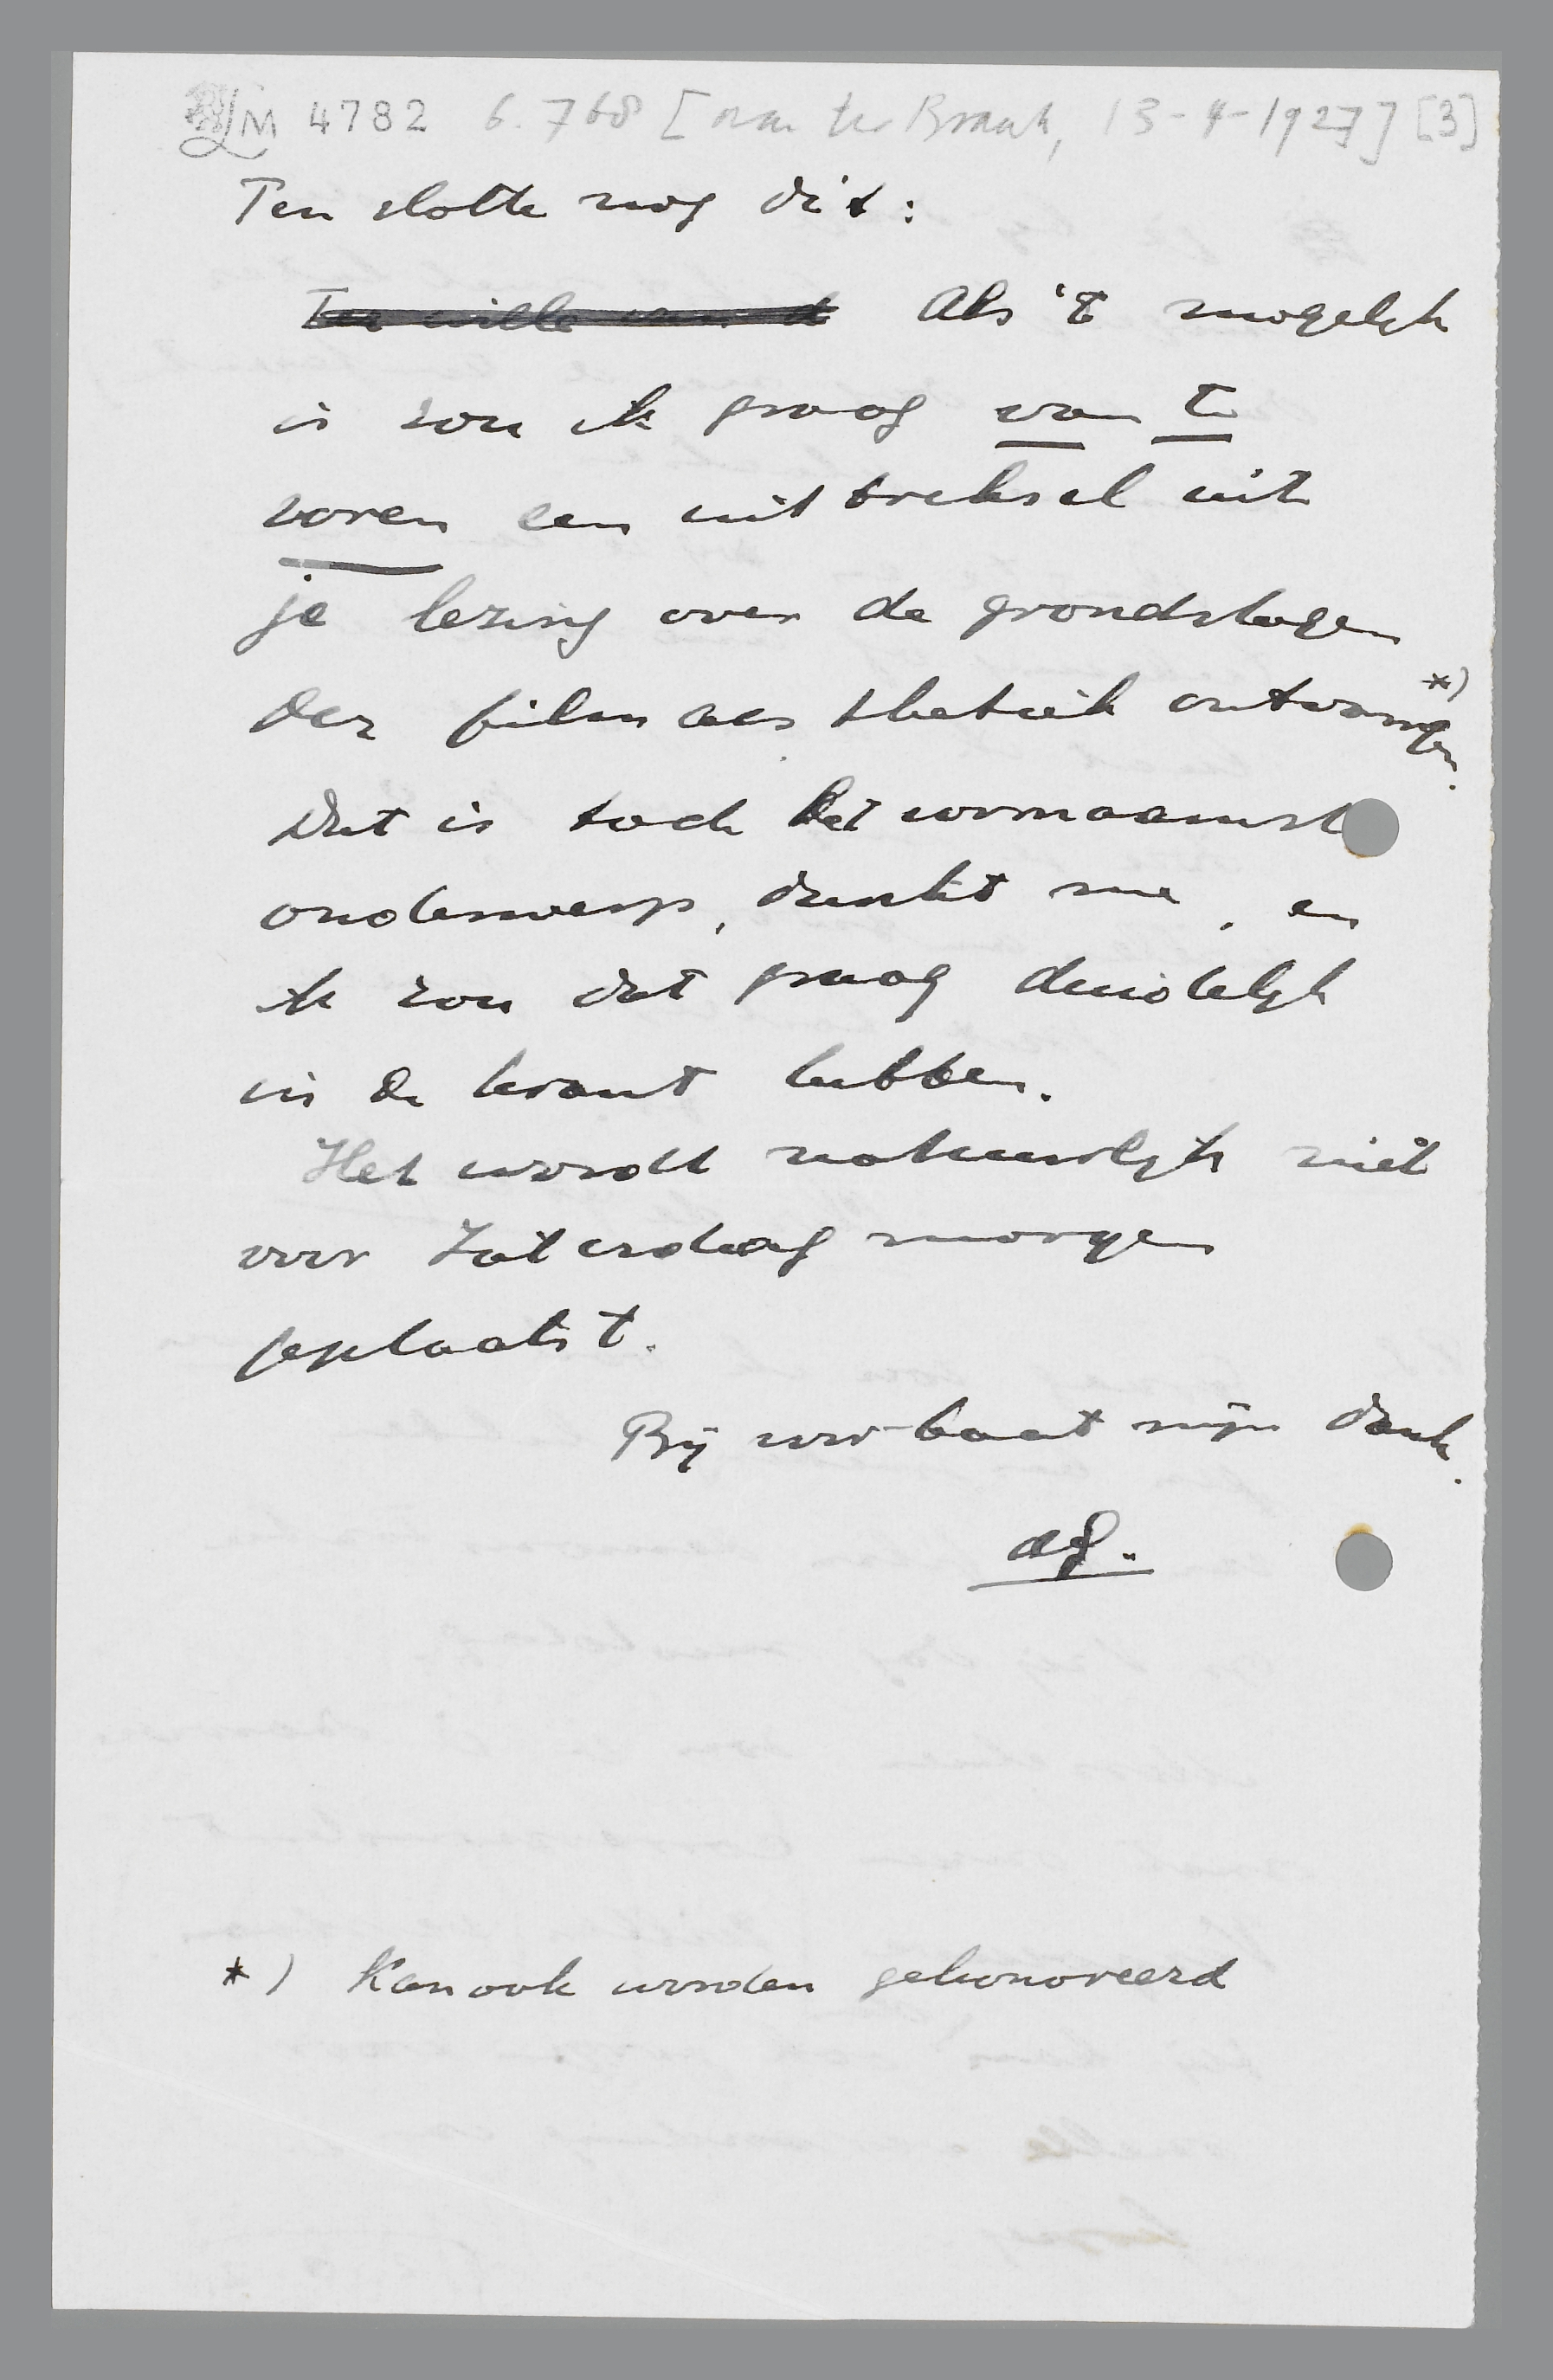 LM 4782 6.768 [aan ter Braak, 13-4-1927] [3]
Ten slotte nog dit:
Ter wille van d Als 't mogelijk
is zou ik graag van te
voren een uittreksel uit
je lezing over de grondslagen
der filmaesthetiek ontvangen *).
Dat is toch het voornaamste
onderwerp, dunkt me, en
ik zou dat graag duidelijk
in de krant hebben.
Het wordt natuurlijk niet
voor Zaterdagmorgen
geplaatst.
Bij voorbaat mijn dank.
*) Kan ook worden gehonoreerd